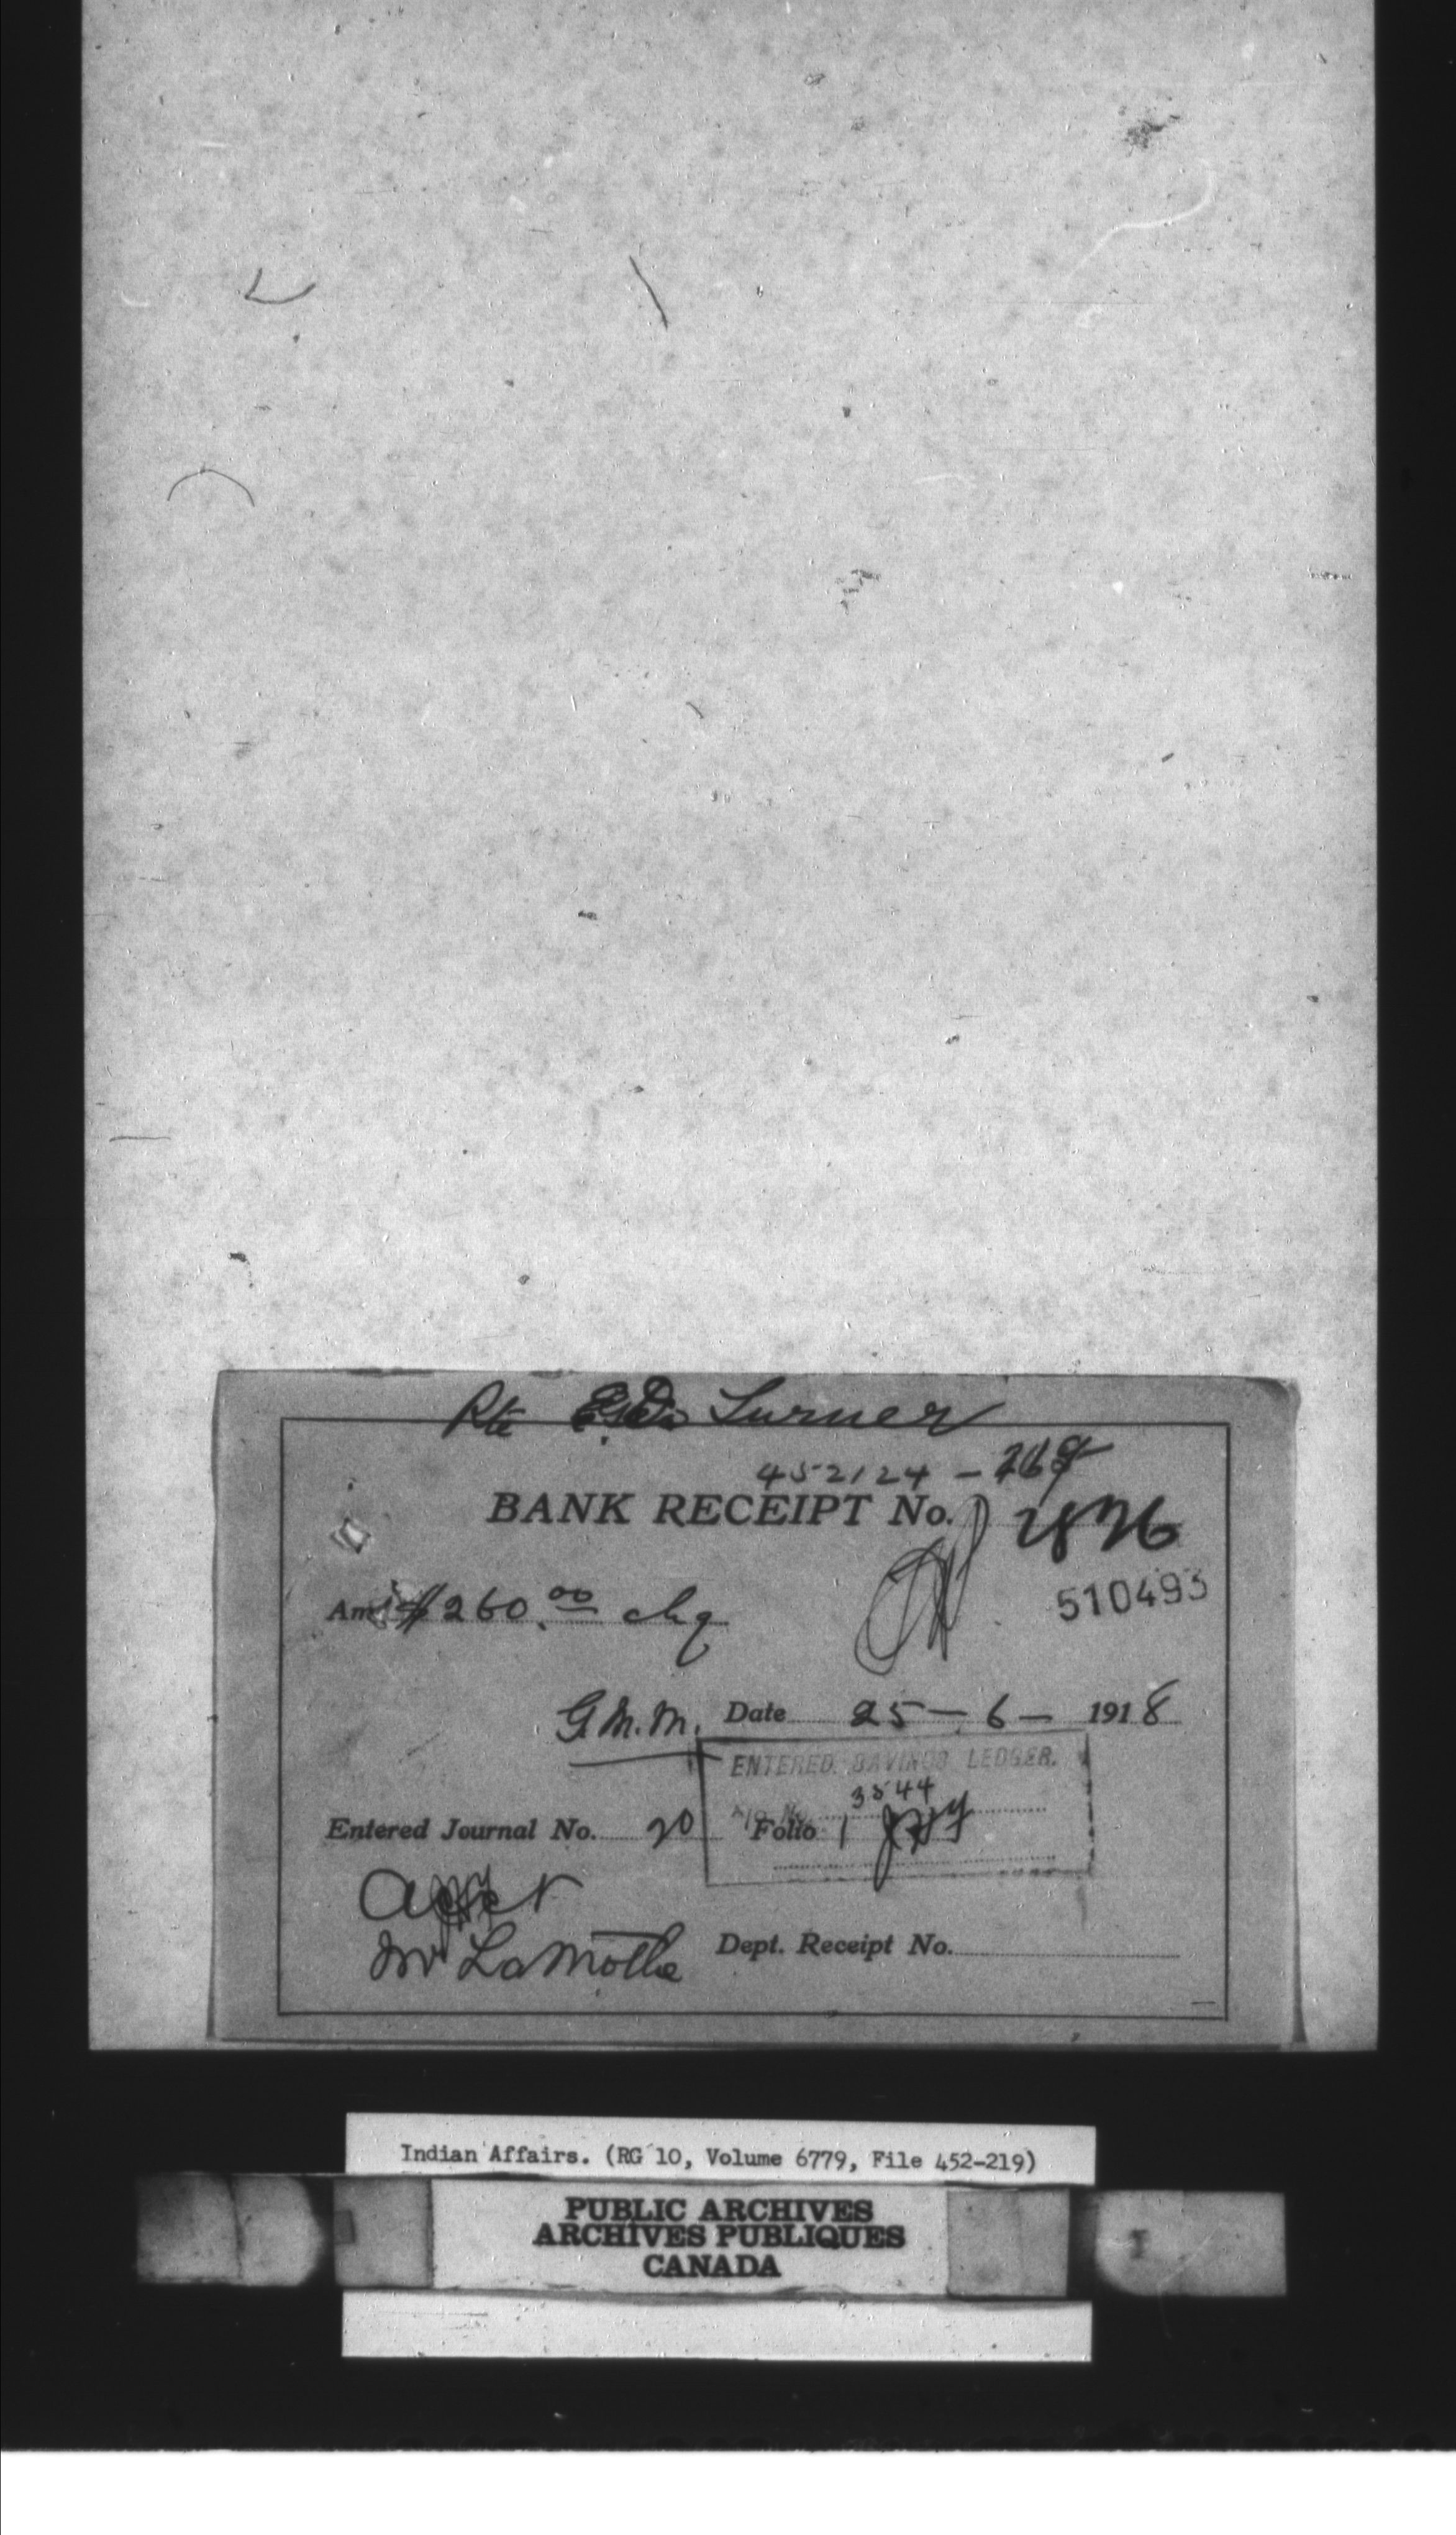 Pte Turner
452124 -
BANK RECEIPT No.
510493
Amt $260.00 chq
G.M.M. Date 25 - 6 - 1918
ENTERED SAVINGS LEDGER.
3544
Entered Journal No. 20 Folio 1
Acct
Mr LaMothe Dept. Receipt No.
Indian Affairs. (RG 10, Volume 6779, File 452-219)
PUBLIC ARCHIVES
ARCHIVES PUBLIQUES
CANADA